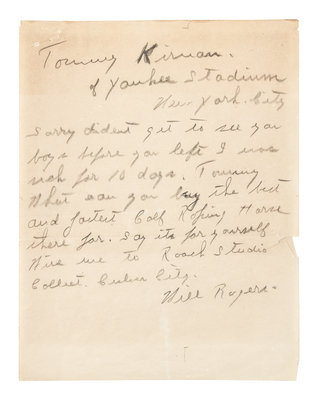 Tommy Kirnan.
of Yankee Stadium
New York. City
Sorry dident get to see you
boys before you left I was
sick for 10 days. Tommy
What can you buy the best
and fastest Calf Roping Horse
there for. Say its for yourself
Wire me to Roach Studio
Collect. Culver City.
Will Rogers.